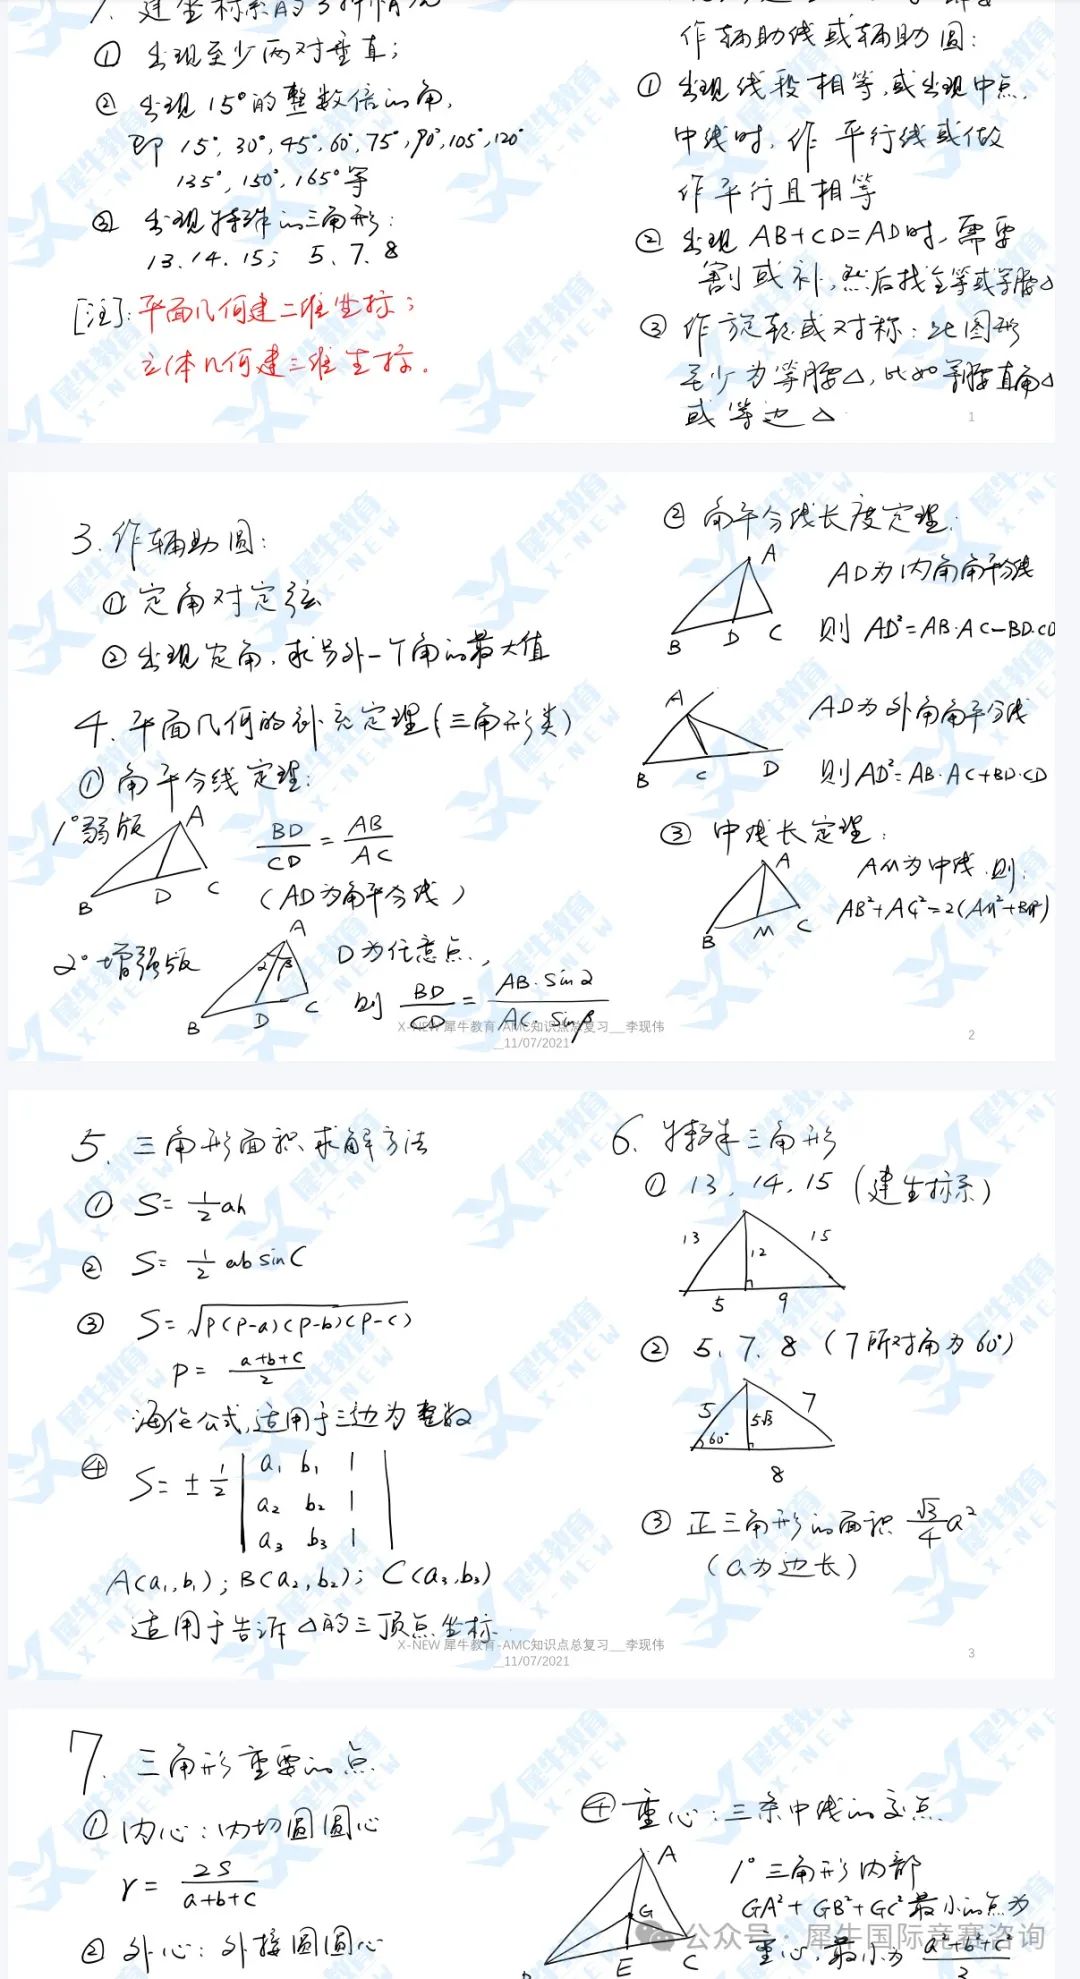 1. 建坐标系的3种情况
① 出现至少两对垂直;
② 出现15°的整数倍的角,
即 15°, 30°, 45°, 60°, 75°, 90°, 105°, 120°
135°, 150°, 165°等
③ 出现特殊的三角形:
13. 14. 15; 5. 7. 8
[注]: 平面几何建二维坐标;
立体几何建三维坐标.
作辅助线或辅助圆:
① 出现线段相等,或出现中点,
中线时,作平行线或做
作平行且相等
② 出现AB+CD=AD时,需要
割或补,然后找全等或等腰△
③ 作旋转或对称: 此图形
至少为等腰△,比如等腰直角△
或等边△
1
3. 作辅助圆:
① 定角对定弦
② 出现定角,求另外一个角的最大值
4. 平面几何的补充定理(三角形类)
① 角平分线定理:
1° 弱版
A
B D C
BD/CD = AB/AC
(AD为角平分线)
2° 增强版
A
α β
B D C
D为任意点,
则 BD/CD = AB·sinα/AC·sinβ
② 角平分线长度定理:
A
B D C
AD为内角角平分线
则 AD²=AB·AC-BD·CD
A
B C D
AD为外角角平分线
则AD²=AB·AC+BD·CD
③ 中线长定理:
A
B M C
AM为中线,则:
AB²+AC²=2(AM²+BM²)
X-NEW 犀牛教育-AMC知识点总复习__李现伟
__11/07/2021
2
5. 三角形面积求解方法
① S= 1/2 ah
② S= 1/2 ab sinC
③ S=√p(p-a)(p-b)(p-c)
p= a+b+c/2
海伦公式,适用于三边为整数
④ S= ± 1/2 | a₁ b₁ 1 |
a₂ b₂ 1
a₃ b₃ 1
A(a₁,b₁); B(a₂,b₂); C(a₃,b₃)
适用于告诉△的三顶点坐标
6. 特殊三角形
① 13, 14, 15 (建坐标系)
13 12 15
5 9
② 5, 7, 8 (7所对角为60°)
5 5√3 7
60°
8
③ 正三角形的面积 √3/4 a²
(a为边长)
X-NEW 犀牛教育-AMC知识点总复习__李现伟
__11/07/2021
3
7. 三角形重要的点
① 内心: 内切圆圆心
r= 2S/a+b+c
② 外心: 外接圆圆心
④ 重心: 三条中线的交点
A
G
E C
1° 三角形内部
GA²+GB²+GC²最小的点为
重心,最小为 a²+b²+c²/3
公众号·犀牛国际竞赛咨询
犀牛教育
X-NEW